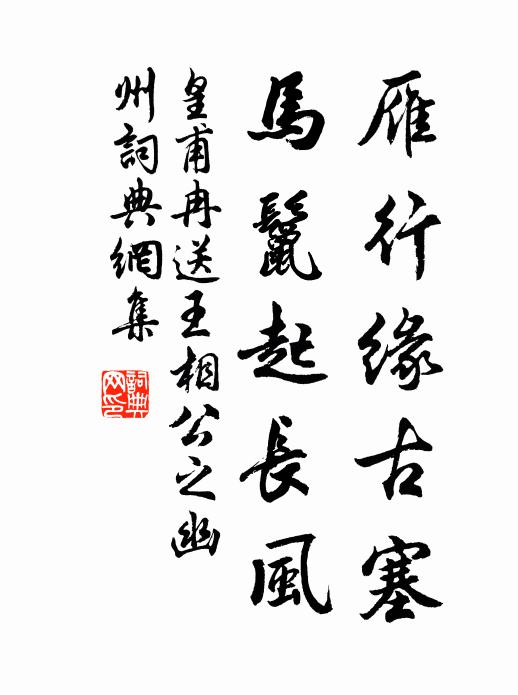 雁行緣古塞
馬鬣起長風
皇甫冉送王相公之幽
州詞典網集
詞典
网印